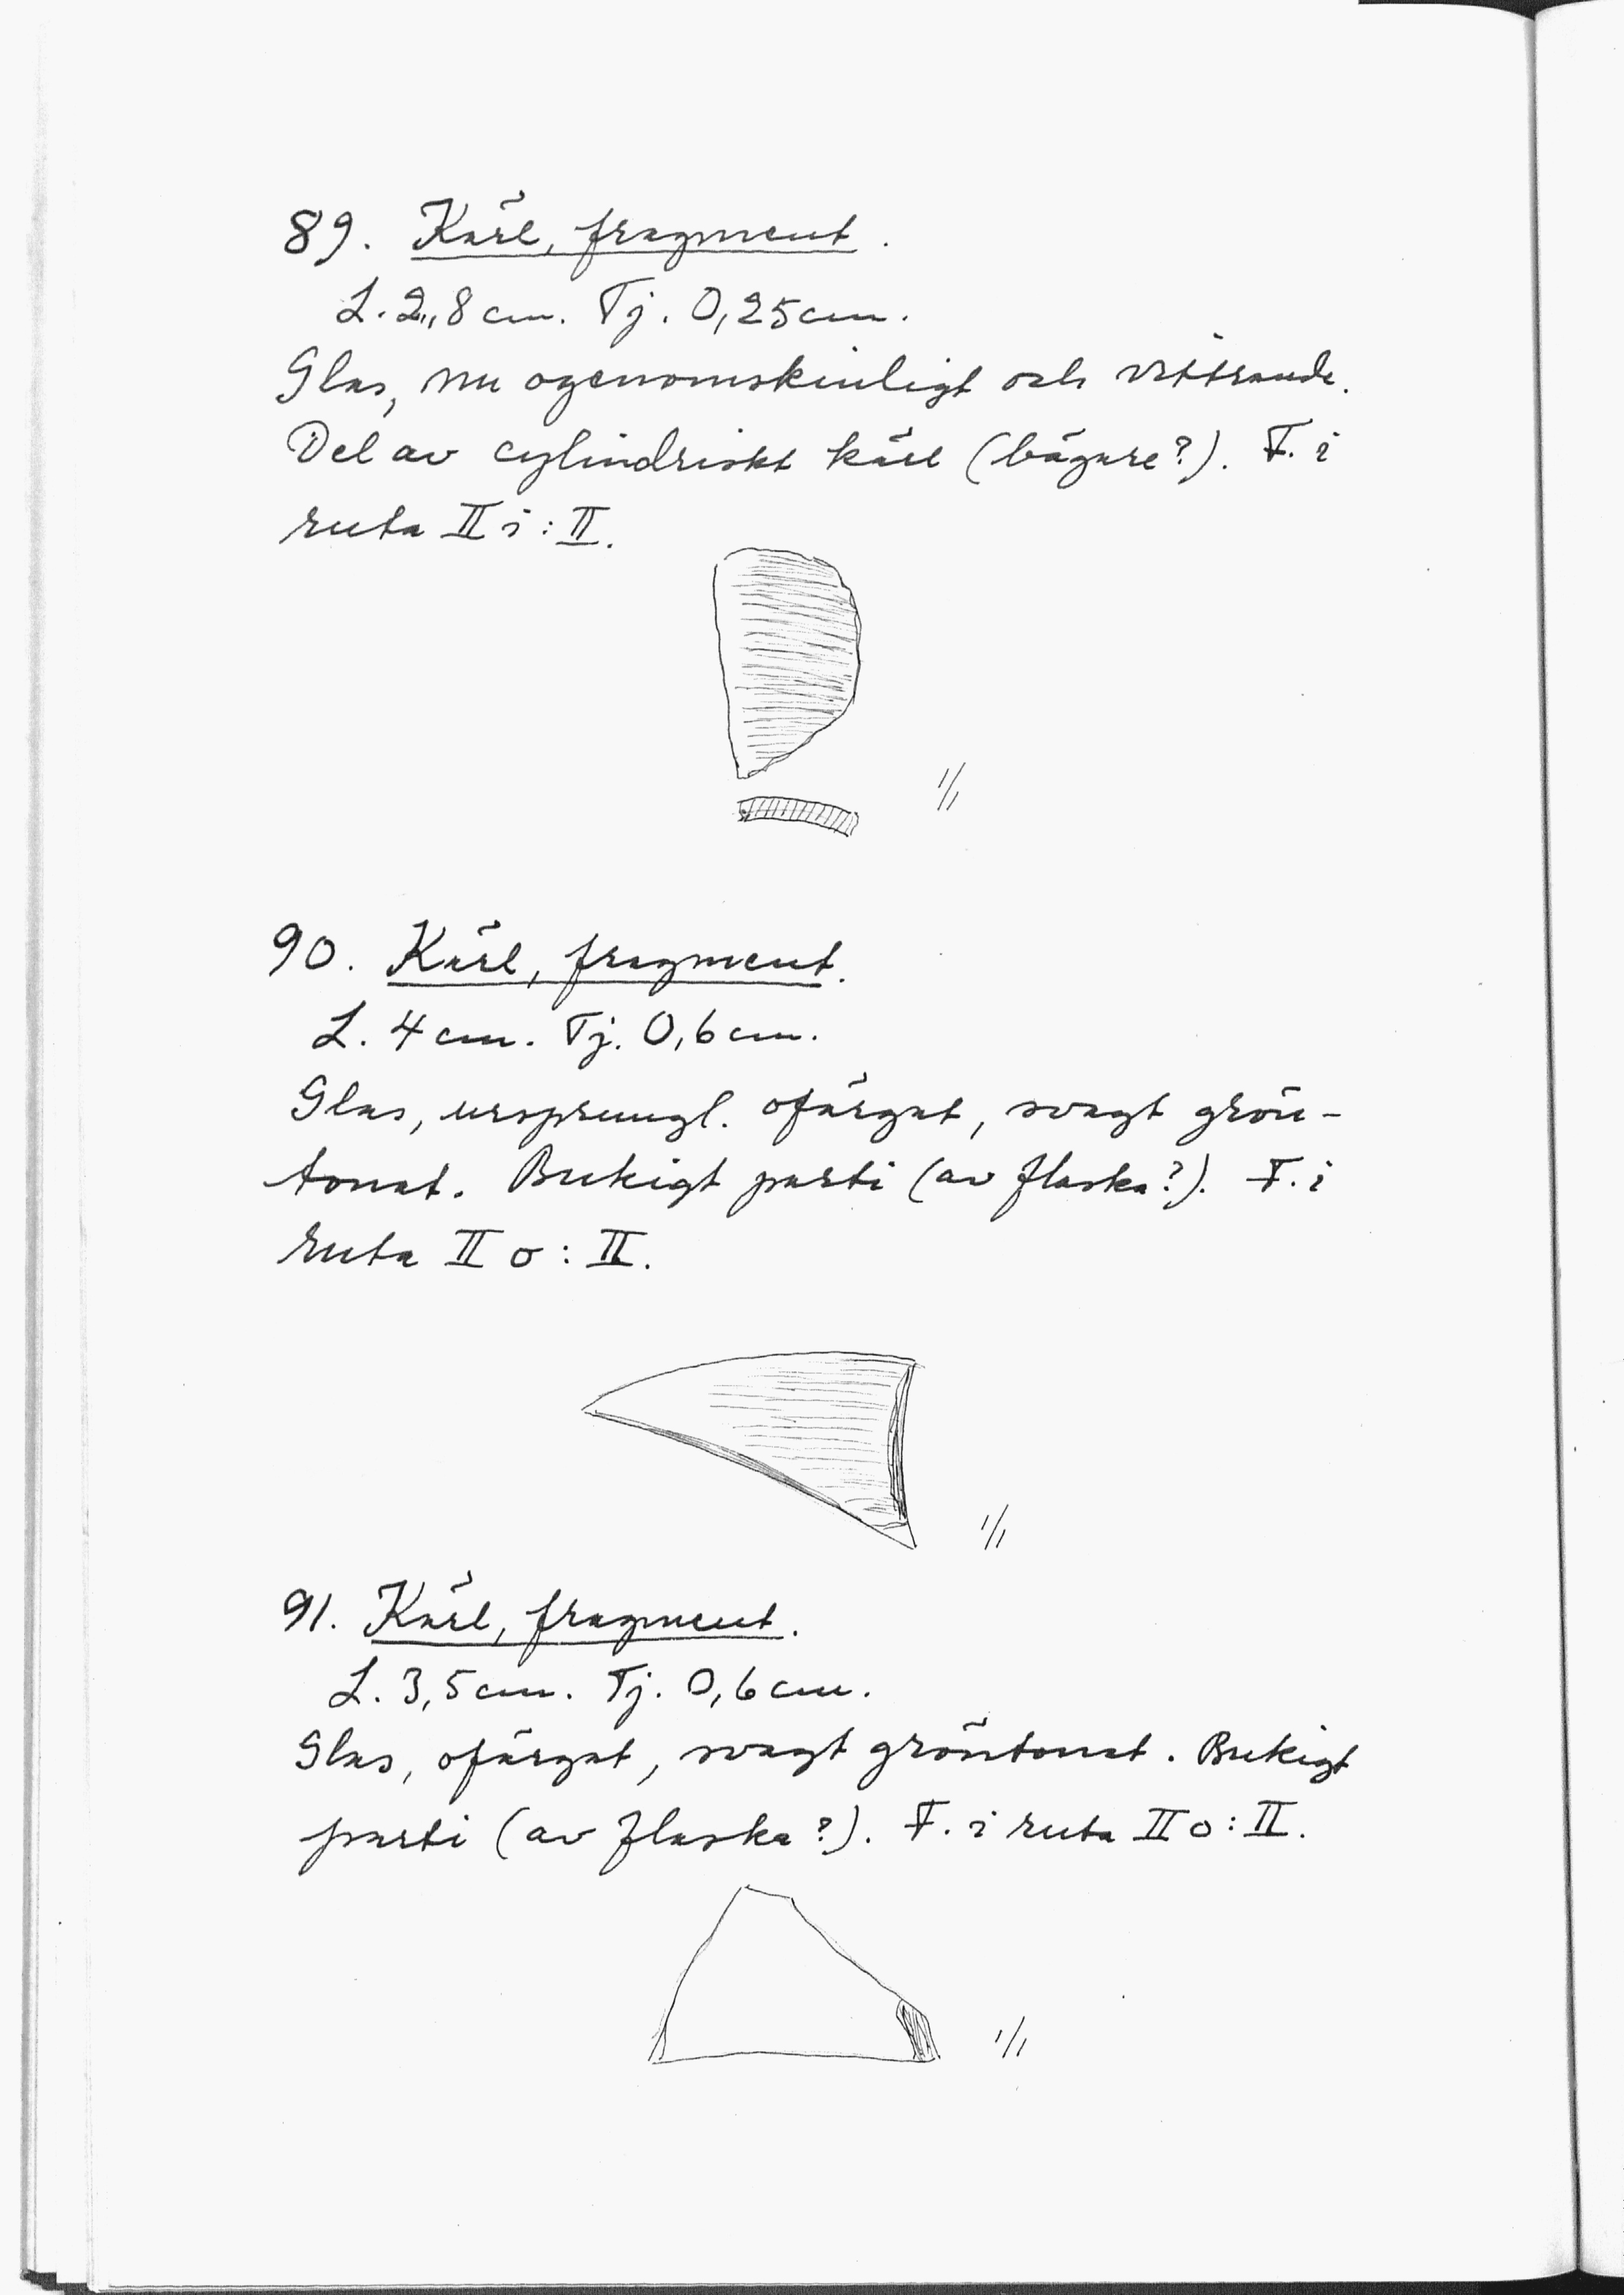 89. Kärl, fragment.
L. 2,8 cm. Tj. 0,25 cm.
Glas, nu ogenomskinligt och vittrande.
Del av cylindriskt kärl (bägare?). F. i
ruta II i : II.
1/1
90. Kärl, fragment.
L. 4 cm. Tj. 0,6 cm.
Glas, ursprungl. ofärgat, svagt grön-
tonat. Bukigt parti (av flaska?). F. i
ruta II o : II.
1/1
91. Kärl, fragment.
L. 3,5 cm. Tj. 0,6 cm.
Glas, ofärgat, svagt gröntonat. Bukigt
parti (av flaska?). F. i ruta II o : II.
1/1